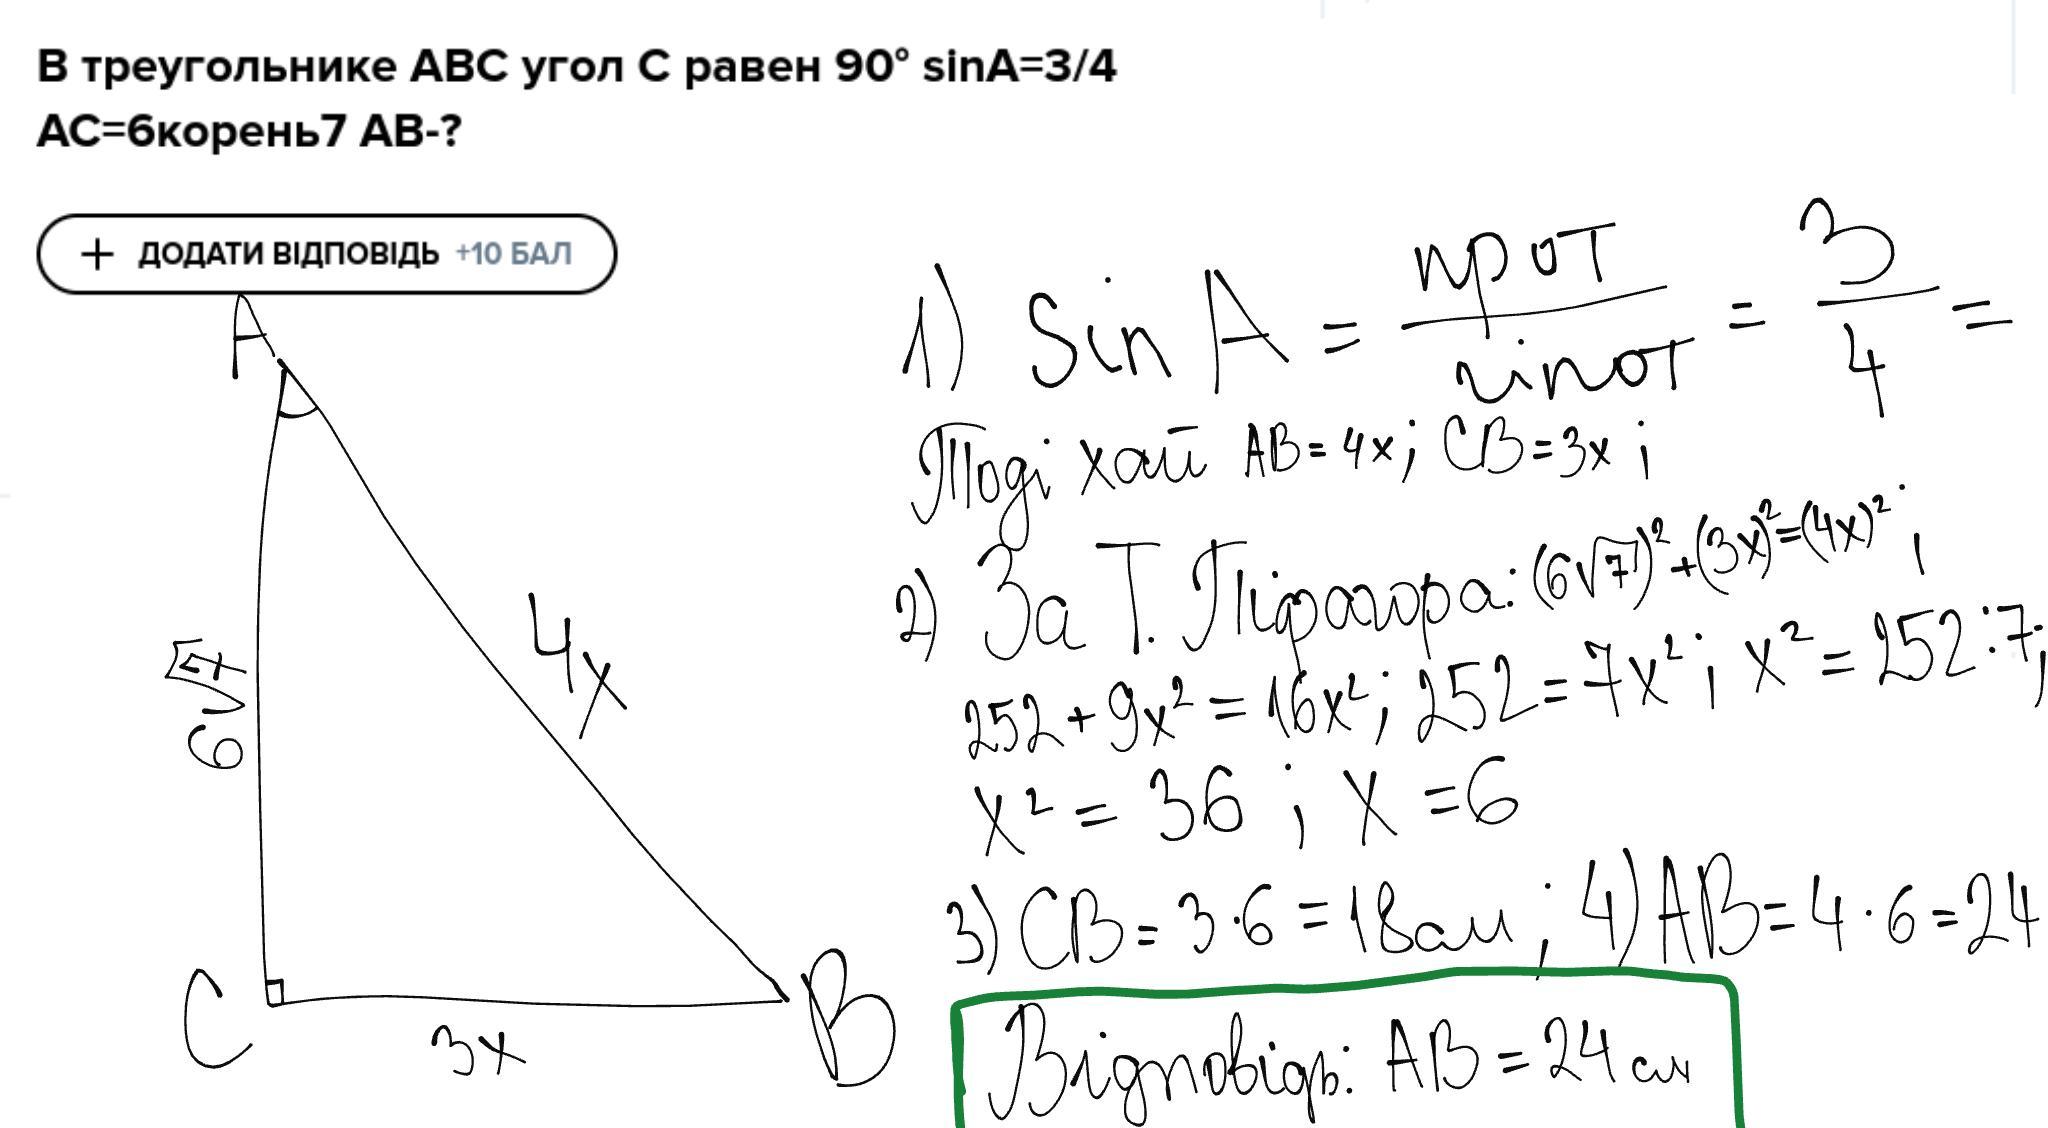 В треугольнике АВС угол С равен 90° sinA=3/4
АС=6корень7 АВ-?
+ ДОДАТИ ВІДПОВІДЬ +10 БАЛ
A
6√7
4x
C
3x
B
1) Sin A = прот/гіпот = 3/4 =
Тоді хай AB = 4x; CB = 3x;
2) За Т. Піфагора: (6√7)² + (3x)² = (4x)²;
252 + 9x² = 16x²; 252 = 7x²; x² = 252:7;
x² = 36; x = 6
3) CB = 3·6 = 18см; 4) AB = 4·6 = 24
Відповідь: AB = 24 см